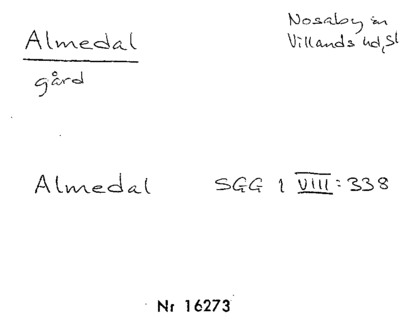 Almedal
gård
Nosaby sn
Villands hd, Sk
Almedal SGG 1 VIII: 338
Nr 16273